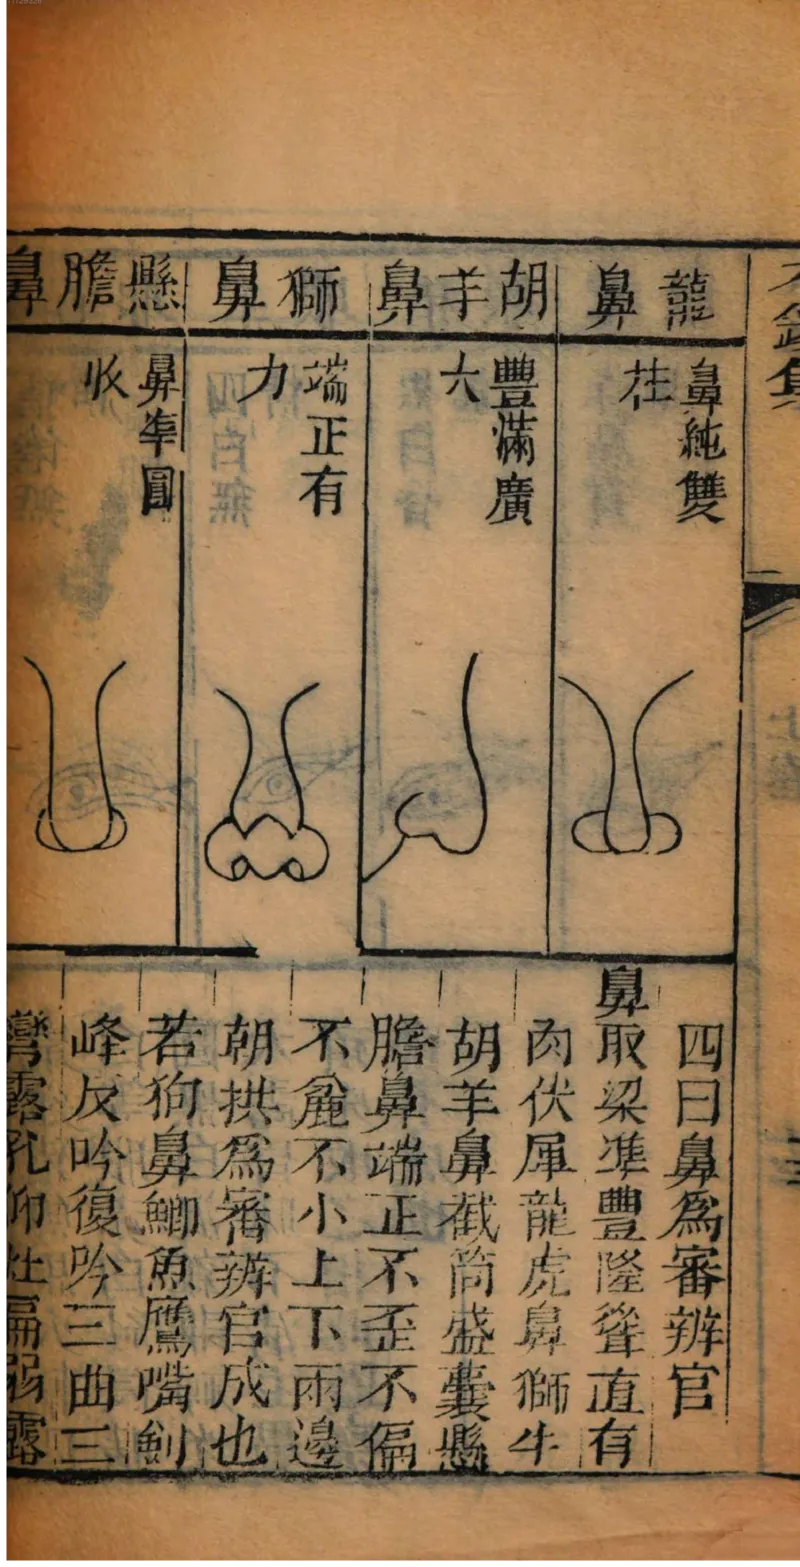 龍鼻
鼻純雙
柱
胡羊鼻
豐滿廣
大
獅鼻
端正有
力
懸膽鼻
鼻準圓
收
四曰鼻為審辨官
鼻取梁準豐隆聳直有
肉伏犀龍虎鼻獅牛
胡羊鼻截筒盛囊懸
膽鼻端正不歪不偏
不麄不小上下兩邊
朝拱為審辨官成也
若狗鼻鯽魚鷹嘴劍
峰反吟復吟三曲三
彎露孔仰灶扁弱露